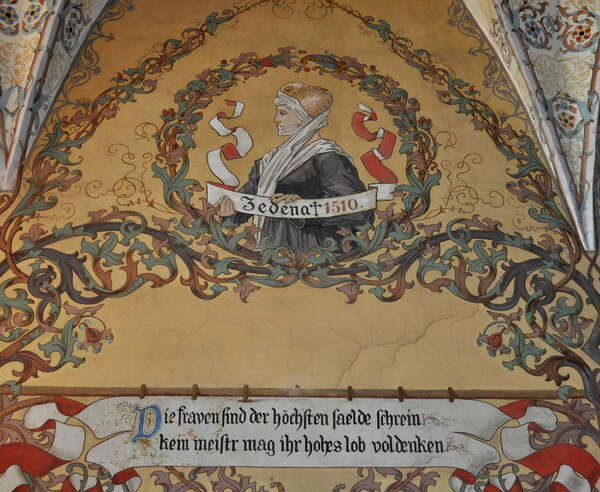 Zedena † 1510.
Die fraven sind der höchsten saelde schrein
kein meistr mag ihr hohes lob voldenken